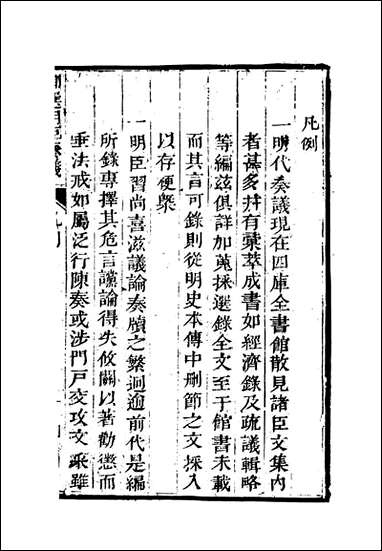 凡例
一明代奏議現在四庫全書館散見諸臣文集內
者甚多幷有彙萃成書如經濟錄及疏議輯略
等編茲俱詳加蒐採選錄全文至于館書未載
而其言可錄則從明史本傳中刪節之文採入
以存梗槩
一明臣習尚喜滋議論奏牘之繁迥逾前代是編
所錄專擇其危言讜論得失攸關以著勸懲而
垂法戒如屬泛行陳奏或涉門戶交攻文采雖
明臣奏議
凡例